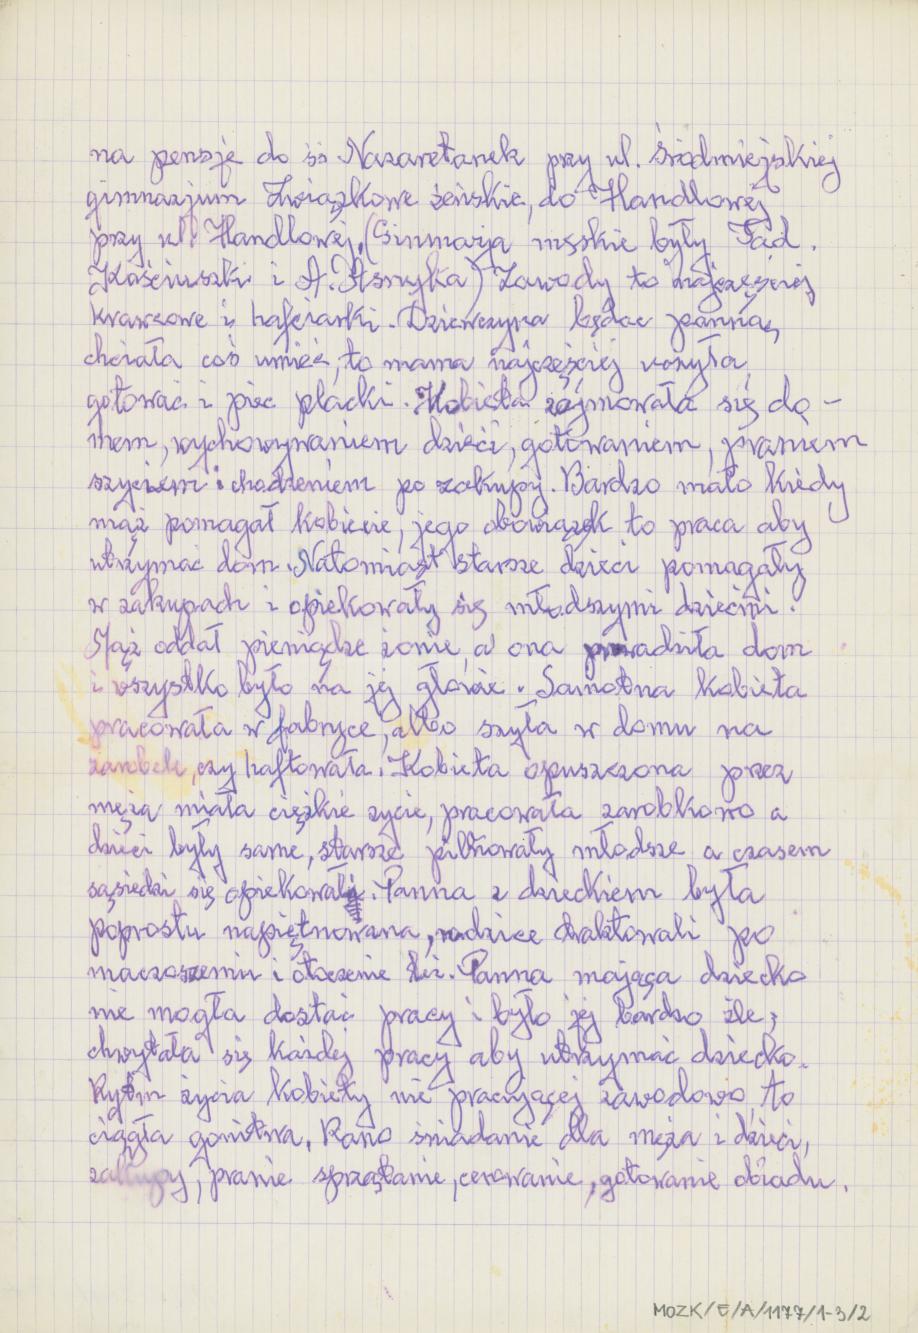 na pensję do ss Nazaretanek przy ul. Śródmiejskiej
gimnazjum Związkowe żeńskie, do Handlowej
przy ul. Handlowej. (Gimnazja męskie były Tad.
Kościuszki i A. Asnyka) Zawody to najczęściej
krawcowe i hafciarki. Dziewczyna będąc panną,
chciała coś umieć, to mama najczęściej uczyła
gotować i piec placki. Kobieta zajmowała się do-
mem, wychowywaniem dzieci, gotowaniem, praniem
szyciem i chodzeniem po zakupy. Bardzo mało kiedy
mąż pomagał kobiecie, jego obowiązek to praca aby
utrzymać dom. Natomiast starsze dzieci pomagały
w zakupach i opiekowały się młodszymi dziećmi.
Mąż oddał pieniądze żonie, a ona prowadziła dom
i wszystko było na jej głowie. Samotna kobieta
pracowała w fabryce, albo szyła w domu na
zarobek, czy haftowała. Kobieta opuszczona przez
męża miała ciężkie życie, pracowała zarobkowo a
dzieci były same, starsze pilnowały młodsze a czasem
sąsiedzi się opiekowali. Panna z dzieckiem była
poprostu napiętnowana, rodzice traktowali po
macoszemu i otoczenie też. Panna mająca dziecko
nie mogła dostać pracy i było jej bardzo źle,
chwytała się każdej pracy aby utrzymać dziecko.
Rytm życia kobiety nie pracującej zawodowo, to
ciągła gonitwa. Rano śniadanie dla męża i dzieci,
zakupy, pranie sprzątanie, cerowanie, gotowanie obiadu.
MOZK/E/A/1177/1-3/2